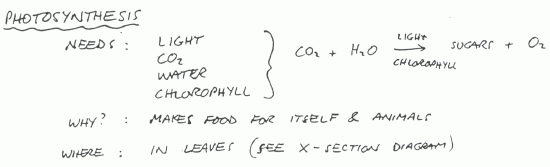 PHOTOSYNTHESIS
NEEDS : LIGHT
CO₂
WATER
CHLOROPHYLL
CO₂ + H₂O → SUGARS + O₂
LIGHT
CHLOROPHYLL
WHY? : MAKES FOOD FOR ITSELF & ANIMALS
WHERE : IN LEAVES (SEE X-SECTION DIAGRAM)